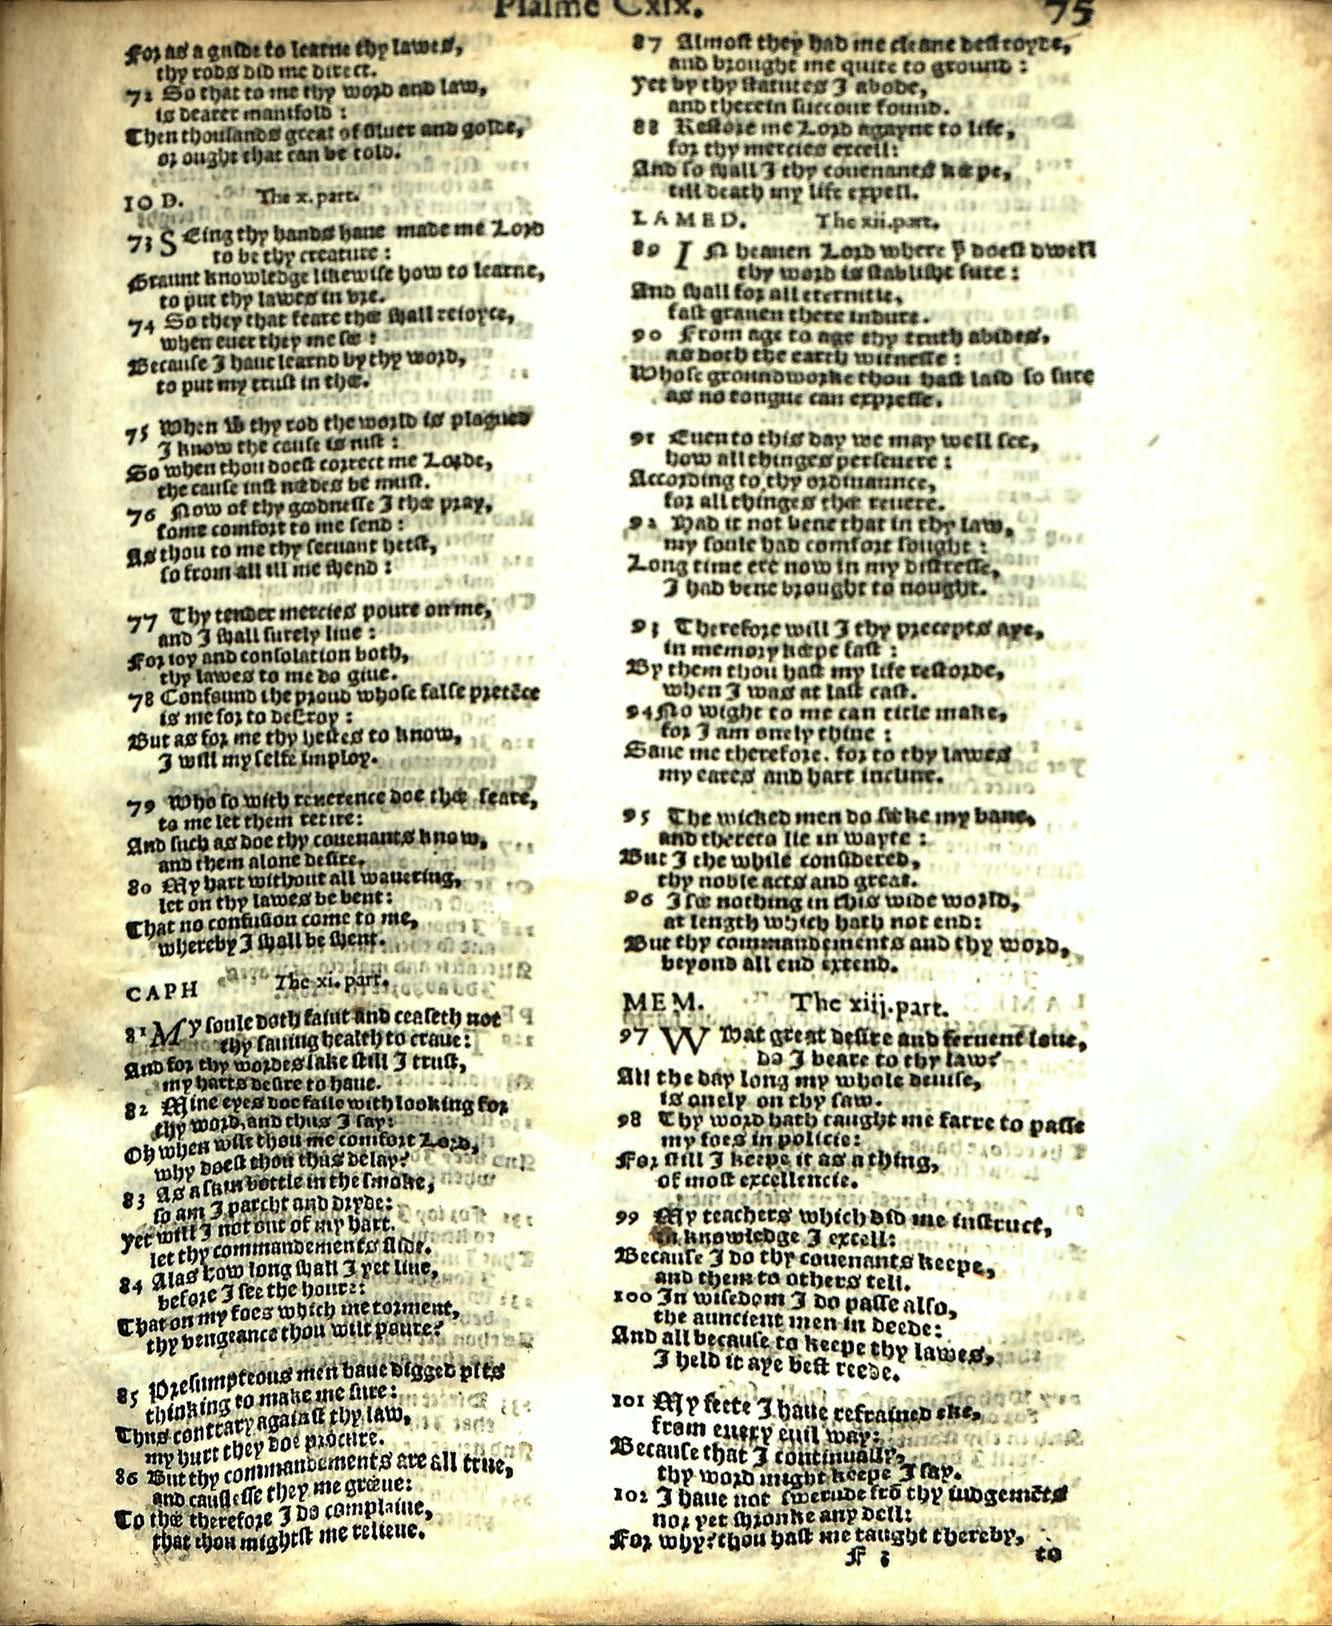 Psalme Cxix. 75
For as a guide to learne thy lawes,
thy rods did me direct.
72 So that to me thy word and law,
is dearer manifold :
Then thousands great of siluer and golde,
or ought that can be told.
IOD. The x. part.
73 SEing thy hands haue made me Lord
to be thy creature :
Graunt knowledge likewise how to learne,
to put thy lawes in vre.
74 So they that feare thee shall reioyce,
when euer they me see :
Because I haue learnd by thy word,
to put my trust in thee.
75 When wt thy rod the world is plagued
I know the cause is iust :
So when thou doest correct me Lorde,
the cause iust needes be must.
76 Now of thy goodnesse I thee pray,
some comfort to me send :
As thou to me thy seruant heest,
so from all ill me shend :
77 Thy tender mercies poure on me,
and I shall surely liue :
For ioy and consolation both,
thy lawes to me do giue.
78 Confound the proud whose false pretẽce
is me for to destroy :
But as for me thy hestes to know,
I will my selfe imploy.
79 Who so with reuerence doe thee feare,
to me let them retire:
And such as doe thy couenants know,
and them alone desire.
80 My hart without all wauering,
let on thy lawes be bent:
That no confusion come to me,
whereby I shall be shent.
CAPH The xi. part.
81 My soule doth faint and ceaseth not
thy sauing health to craue:
And for thy wordes sake still I trust,
my harts desire to haue.
82 Mine eyes doe faile with looking for
thy word, and thus I say:
Oh when wilt thou me comfort Lord,
why doest thou thus delay?
83 As a skin bottle in the smoke,
so am I parcht and dryde:
Yet will I not out of my hart.
let thy commandements slide.
84 Alas how long shall I yet liue,
before I see the houre:
That on my foes which me torment,
thy vengeance thou wilt poure?
85 Presumpteous men haue digged pits
thinking to make me sure:
Thus contrary against thy law,
my hurt they doe procure.
86 But thy commandements are all true,
and causlesse they me greeue:
To thee therefore I do complaine,
that thou mightst me relieue.
87 Almost they had me cleane destroyde,
and brought me quite to ground :
Yet by thy statutes I abode,
and therein succour found.
88 Restore me Lord agayne to life,
for thy mercies excell:
And so shall I thy couenants keepe,
till death my life expell.
LAMED. The xii. part.
89 IN heauen Lord where yͤ doest dwell
thy word is stablisht sure :
And shall for all eternitie,
fast grauen there indure.
90 From age to age thy truth abides,
as doth the earth witnesse :
Whose groundworke thou hast laid so sure
as no tongue can expresse.
91 Euen to this day we may well see,
how all thinges perseuere :
According to thy ordinaunce,
for all thinges thee reuere.
92 Had it not bene that in thy law,
my soule had comfort sought :
Long time ere now in my distresse,
I had bene brought to nought.
93 Therefore will I thy precepts aye,
in memory keepe fast :
By them thou hast my life restorde,
when I was at last cast.
94 No wight to me can title make,
for I am onely thine :
Saue me therefore. for to thy lawes
my eares and hart incline.
95 The wicked men do seeke my bane,
and thereto lie in wayte :
But I the while considered,
thy noble acts and great.
96 I see nothing in this wide world,
at length which hath not end:
But thy commandements and thy word,
beyond all end extend.
MEM. The xiij. part.
97 WHat great desire and feruent loue,
do I beare to thy law?
All the day long my whole deuise,
is onely on thy saw.
98 Thy word hath taught me farre to passe
my foes in policie:
For still I keepe it as a thing,
of most excellencie.
99 My teachers which did me instruct,
in knowledge I excell:
Because I do thy couenants keepe,
and them to others tell.
100 In wisedom I do passe also,
the auncient men in deede:
And all because to keepe thy lawes,
I held it aye best reede.
101 My feete I haue refrained eke,
from euery euil way:
Because that I continually,
thy word might keepe I say.
102 I haue not swerude frõ thy iudgemẽts
nor yet shronke any dell:
For why? thou hast me taught thereby,
F to